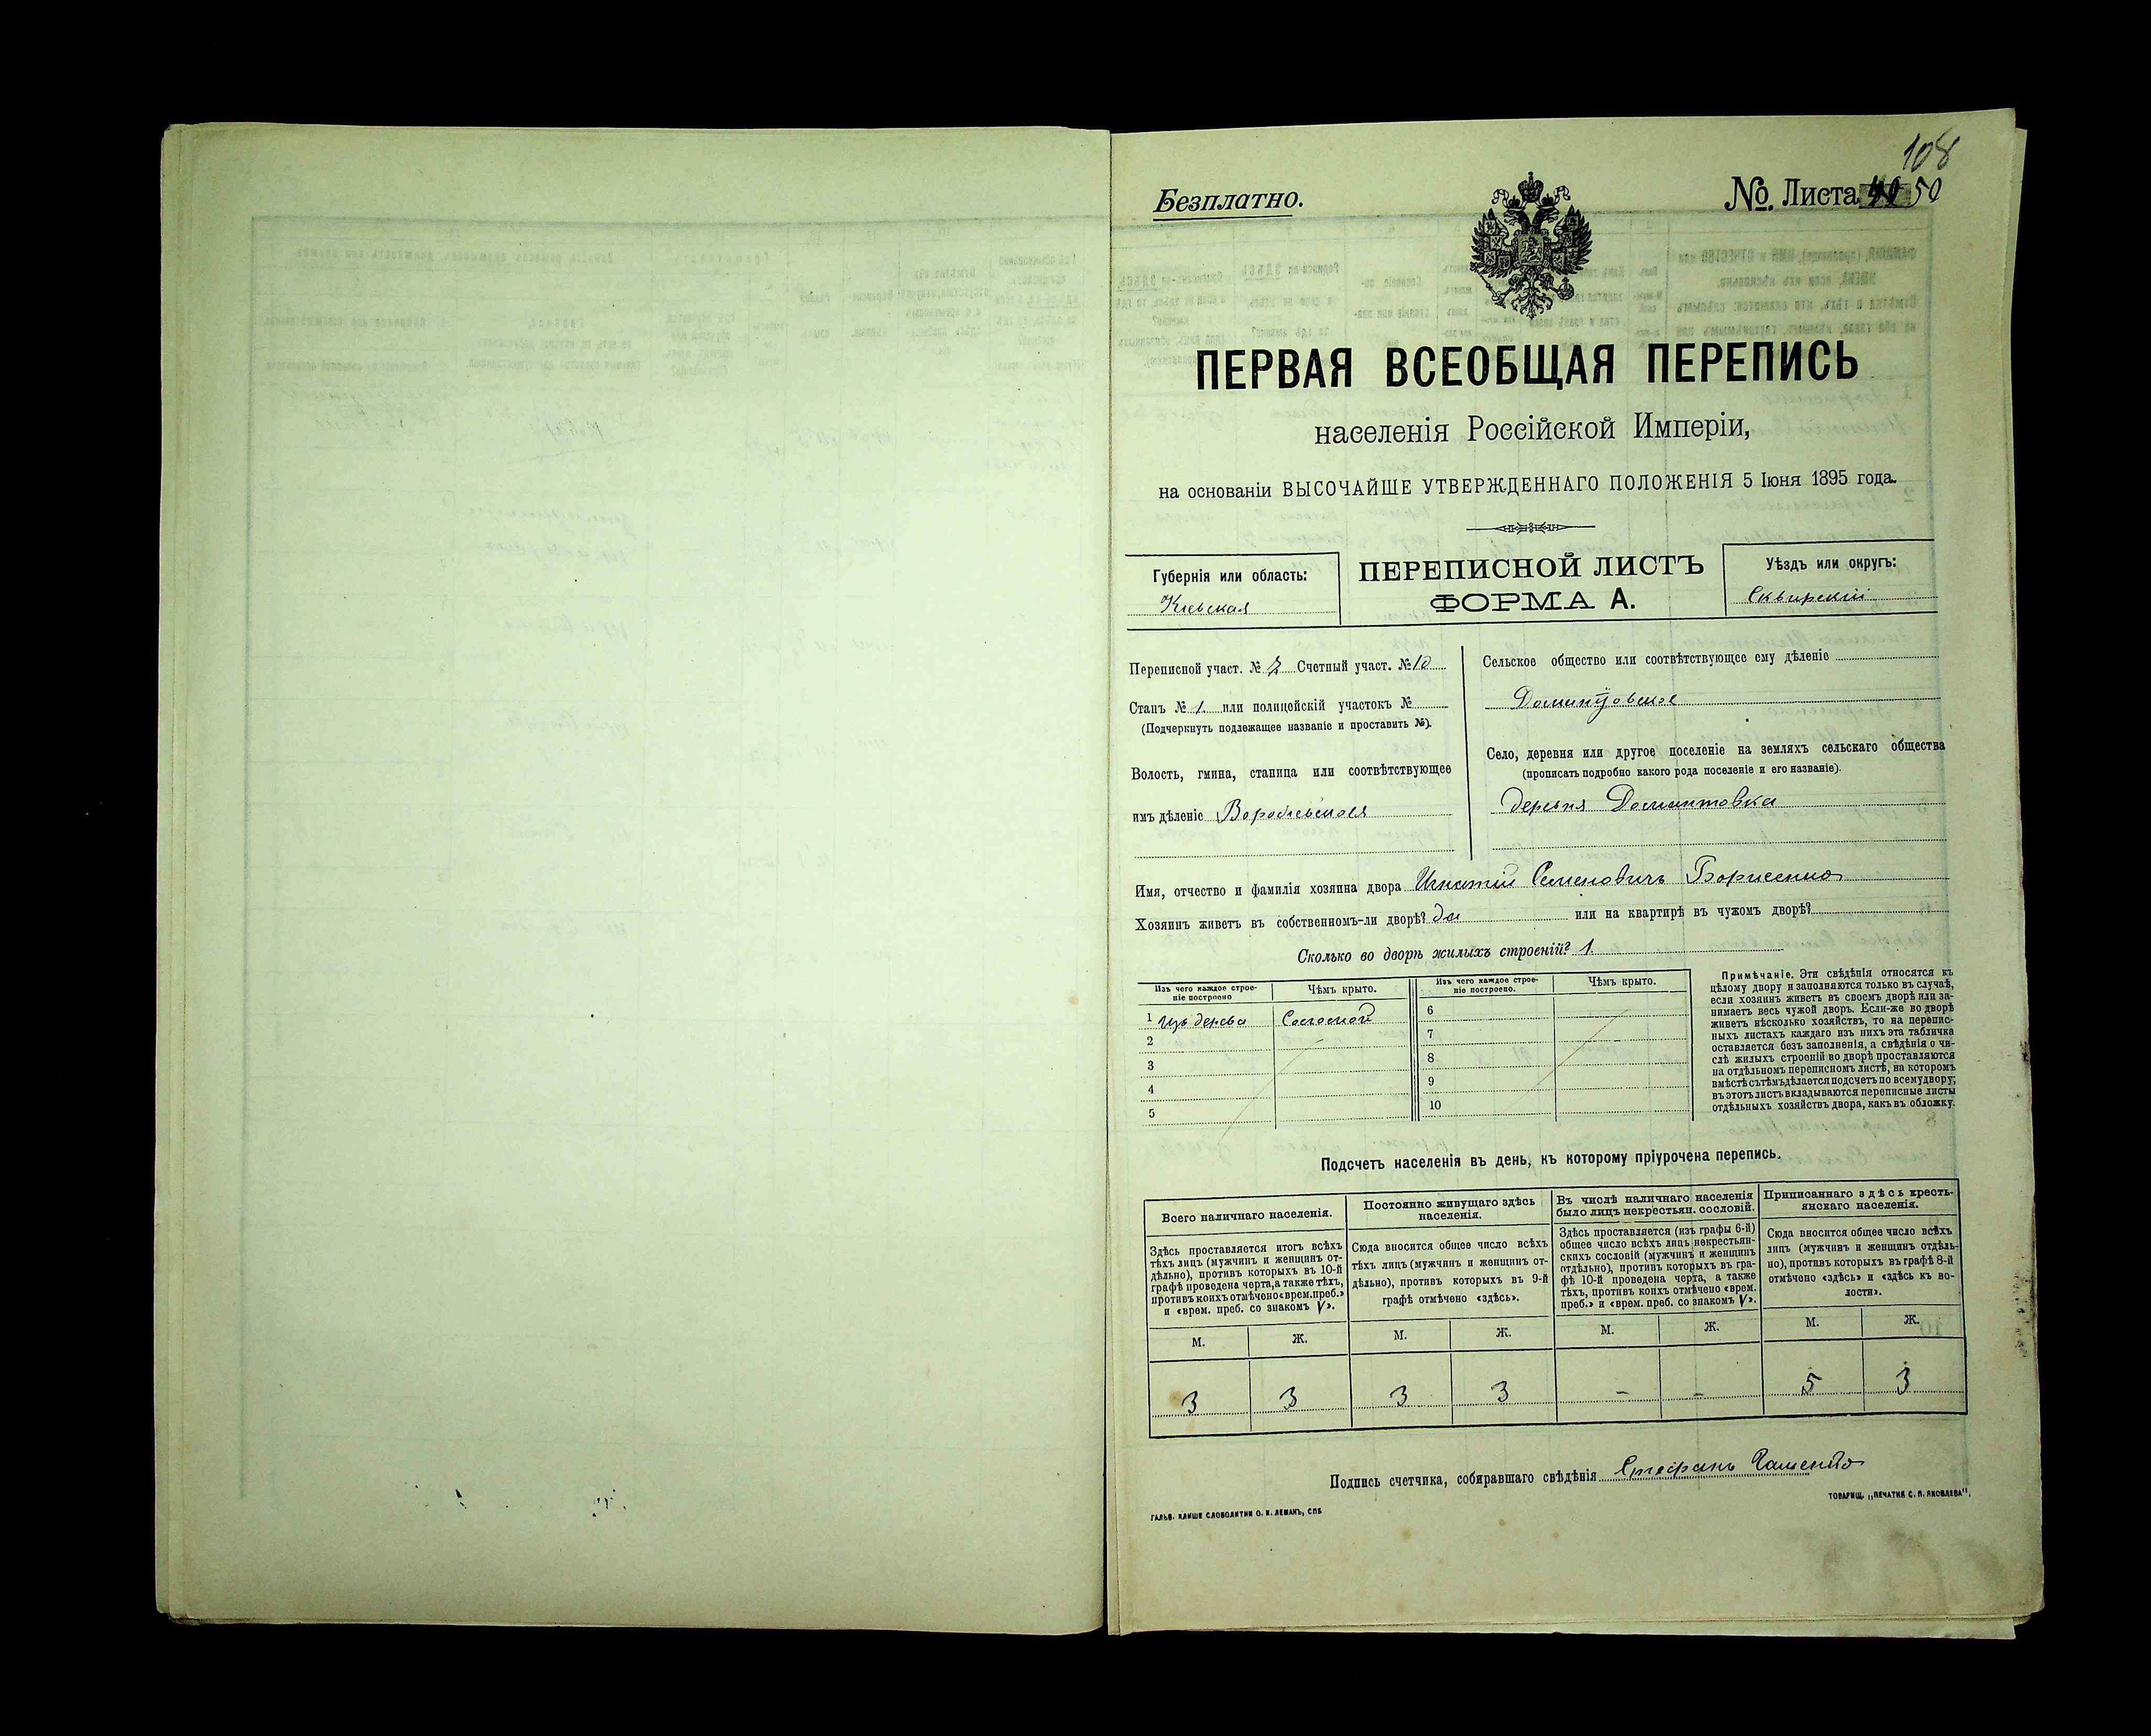 108
Безплатно.
No. Листа 50
ПЕРВАЯ ВСЕОБЩАЯ ПЕРЕПИСЬ
населенія Россійской Имперіи,
на основаніи ВЫСОЧАЙШЕ УТВЕРЖДЕННАГО ПОЛОЖЕНІЯ 5 Іюня 1895 года.
Губернія или область:
Кіевская
ПЕРЕПИСНОЙ ЛИСТЪ
ФОРМА А.
Уѣздъ или округъ:
Сквирскій
Переписной участ. № 7 Счетный участ. № 10
Станъ № 1. или полицейскій участокъ №
(Подчеркнуть подлежащее названіе и проставить №).
Волость, гмина, станица или соотвѣтствующее
имъ дѣленіе
Сельское общество или соотвѣтствующее ему дѣленіе
Домантовское
Село, деревня или другое поселеніе на земляхъ сельскаго общества
(прописать подробно какого рода поселеніе и его названіе).
деревня Домантовка
Имя, отчество и фамилія хозяина двора Игнатій Семеновичъ Борисенко
Хозяинъ живетъ въ собственномъ-ли дворѣ? да или на квартирѣ въ чужомъ дворѣ?
Сколько во дворѣ жилыхъ строеній? 1.
Изъ чего каждое строе-
ніе построено
Чѣмъ крыто.
Изъ чего каждое строе-
ніе построено.
Чѣмъ крыто.
1 Изъ дерева Соломой 6
2 7
3 8
4 9
5 10
Примѣчаніе. Эти свѣдѣнія относятся къ
цѣлому двору и заполняются только въ случаѣ,
если хозяинъ живетъ въ своемъ дворѣ или за-
нимаетъ весь чужой дворъ. Если-же во дворѣ
живетъ нѣсколько хозяйствъ, то на перепис-
ныхъ листахъ каждаго изъ нихъ эта табличка
оставляется безъ заполненія, а свѣдѣнія о чи-
слѣ жилыхъ строеній во дворѣ проставляются
на отдѣльномъ переписномъ листѣ, на которомъ
вмѣстѣ съ тѣмъ дѣлается подсчетъ по всему двору;
въ этотъ листъ вкладываются переписные листы
отдѣльныхъ хозяйствъ двора, какъ въ обложку.
Подсчетъ населенія въ день, къ которому пріурочена перепись.
Всего наличнаго населенія.
Здѣсь проставляется итогъ всѣхъ
тѣхъ лицъ (мужчинъ и женщинъ от-
дѣльно), противъ которыхъ въ 10-й
графѣ проведена черта, а также тѣхъ,
противъ коихъ отмѣчено «врем. преб.»
и «врем. преб. со знакомъ V».
Постоянно живущаго здѣсь
населенія.
Сюда вносится общее число всѣхъ
тѣхъ лицъ (мужчинъ и женщинъ от-
дѣльно), противъ которыхъ въ 9-й
графѣ отмѣчено «здѣсь».
Въ числѣ наличнаго населенія
было лицъ некрестьян. сословій.
Здѣсь проставляется (изъ графы 6-й)
общее число всѣхъ лицъ некрестьян-
скихъ сословій (мужчинъ и женщинъ
отдѣльно), противъ которыхъ въ гра-
фѣ 10-й проведена черта, а также
тѣхъ, противъ коихъ отмѣчено «врем.
преб.» и «врем. преб. со знакомъ V».
Приписаннаго здѣсь кресть-
янскаго населенія.
Сюда вносится общее число всѣхъ
лицъ (мужчинъ и женщинъ отдѣль-
но), противъ которыхъ въ графѣ 8-й
отмѣчено «здѣсь» и «здѣсь къ во-
лости».
М. Ж. М. Ж. М. Ж. М. Ж.
3 3 3 3 - - 5 3
Подпись счетчика, собиравшаго свѣдѣнія Стефанъ
ГАЛЬВ. КЛИШЕ СЛОВОЛИТНИ О. И. ЛЕМАНЪ, СПБ
ТОВАРИЩ. „ПЕЧАТНЯ С. П. ЯКОВЛЕВА".